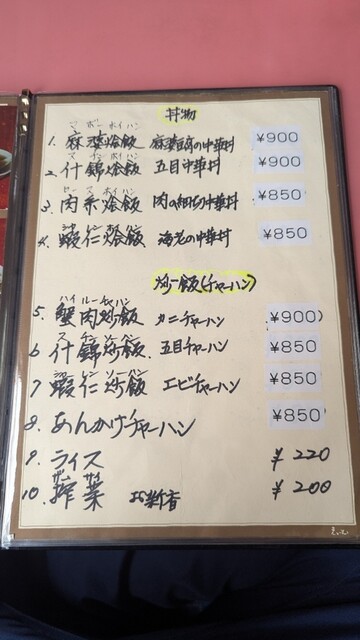 丼物
マ ボー ホイ ハン
1. 麻婆烩飯 麻婆豆腐の中華丼 ¥900
2. 什錦烩飯 五目中華丼 ¥900
3. 肉糸烩飯 肉の細切中華丼 ¥850
4. 蝦仁烩飯 海老の中華丼 ¥850
炒飯(チャーハン)
5. 蟹肉炒飯 カニチャーハン ¥900)
6 什錦炒飯. 五目チャーハン ¥850
7 蝦仁炒飯 エビチャーハン ¥850
8. あんかけチャーハン ¥850
9. ライス ¥220
10. 搾菜 お新香 ¥200